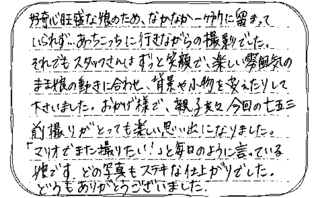 好奇心旺盛な娘のため、なかなか一ヶ所に留まって
いられず…あちこっちに行きながらの撮影でした。
それでもスタッフさんはずっと笑顔で、楽しい雰囲気の
まま娘の動きに合わせ、背景や小物を変えたりして
下さいました。おかげ様で、親子共々今回の七五三
前撮りがとっても楽しい思い出になりました。
「マリオでまた撮りたい！」と毎日のように言っている
娘です。どの写真もステキな仕上がりでした。
どうもありがとうございました。